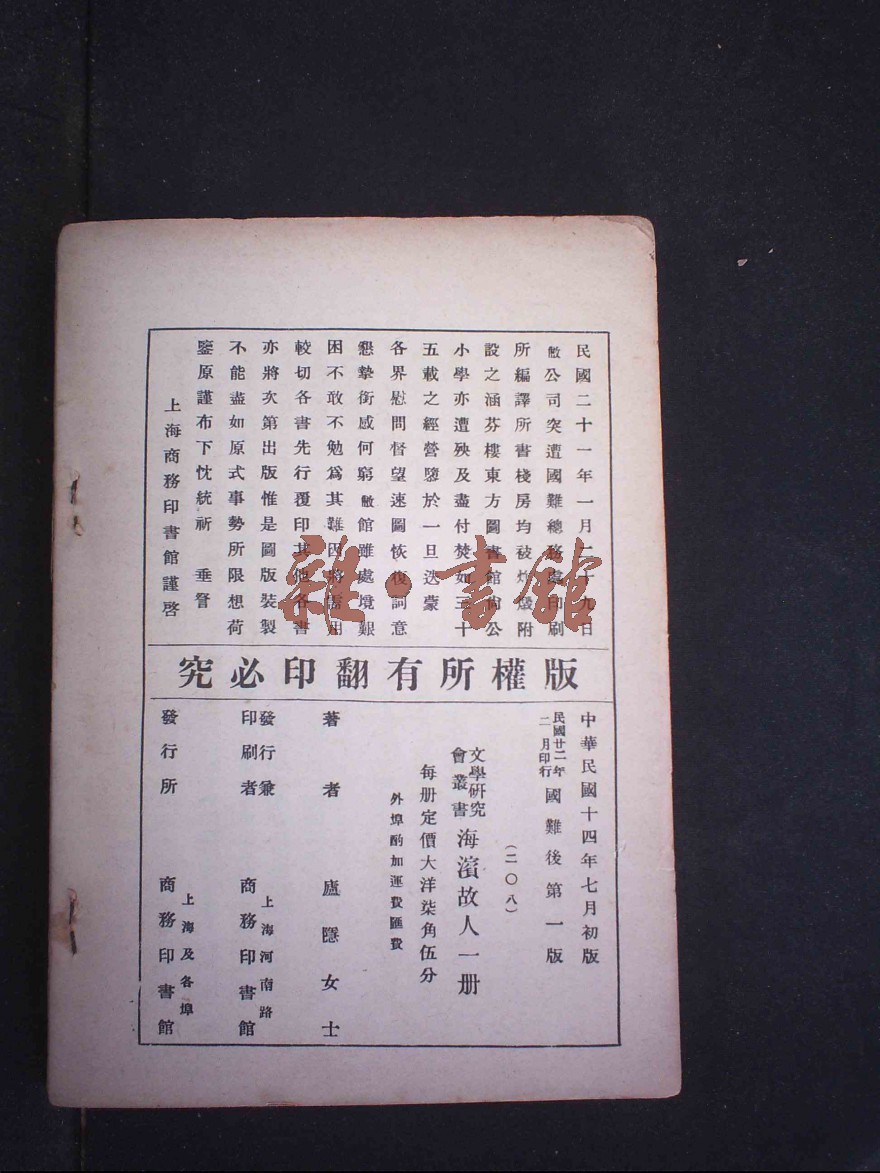 民國二十一年一月二十九日
敝公司突遭國難總務處印刷
所編譯所書棧房均被炸燬附
設之涵芬樓東方圖書館尚公
小學亦遭殃及盡付焚如三十
五載之經營隳於一旦迭蒙
各界慰問督望速圖恢復詞意
懇摯銜感何窮敝館雖處境艱
困不敢不勉為其難因將需用
較切各書先行覆印其他各書
亦將次第出版惟是圖版裝製
不能盡如原式事勢所限想荷
鑒原謹布下忱統祈 垂詧
上海商務印書館謹啓
雜·書館
版權所有翻印必究
中華民國十四年七月初版
民國廿二年二月印行 國難後第一版
(二〇八)
文學研究會叢書 海濱故人一册
每册定價大洋柒角伍分
外埠酌加運費匯費
著者 廬隱女士
發行兼印刷者 上海河南路 商務印書館
發行所 上海及各埠 商務印書館